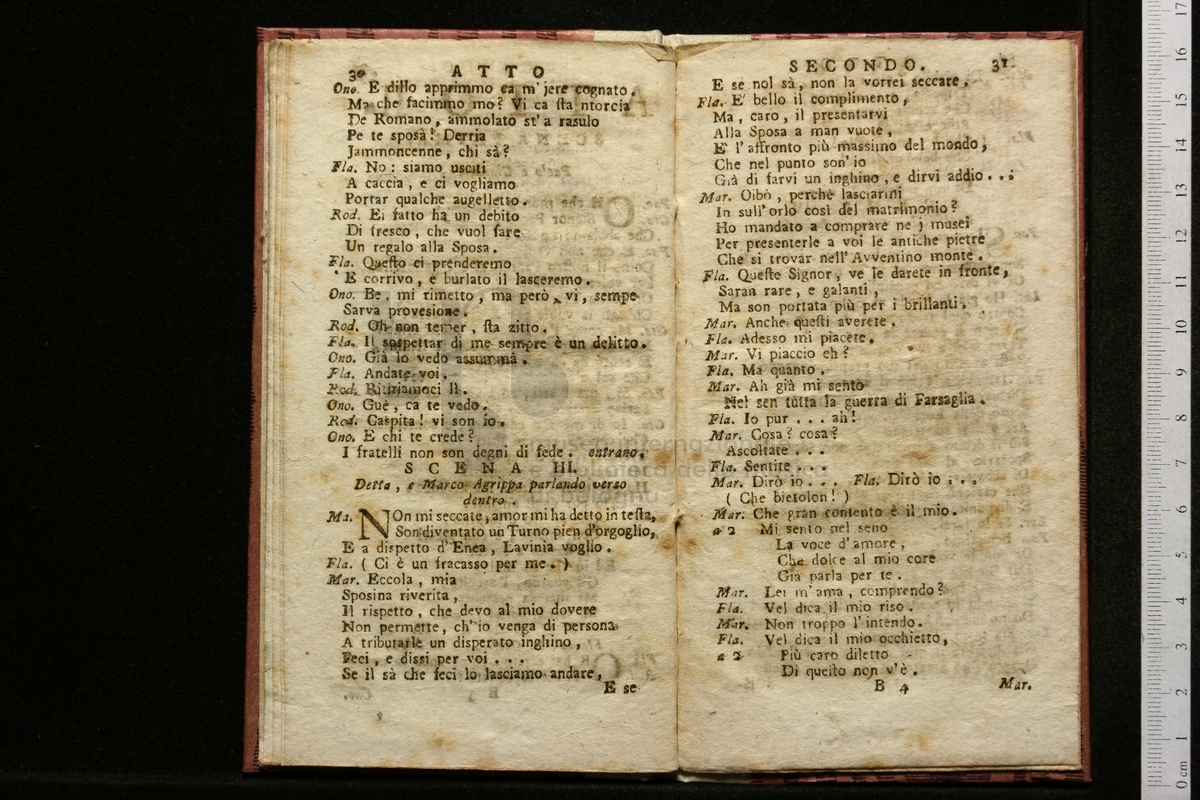 30 ATTO
Ono. E dillo apprimmo ca m'jere cognato.
Ma che facimmo mo? Vi ca sta ntorcia
De Romano, ammolato st'a rasulo
Pe te sposà! Derria
Jammoncenne, chi sà?
Fla. No: siamo usciti
A caccia, e ci vogliamo
Portar qualche augelletto.
Rod. Ei fatto ha un debito
Di fresco, che vuol fare
Un regalo alla Sposa.
Fla. Questo ci prenderemo
E corrivo, e burlato il lasceremo.
Ono. Be, mi rimetto, ma però, vi, sempe
Sarva provesione.
Rod. Oh non temer, sta zitto.
Fla. Il sospettar di me sempre è un delitto.
Ono. Già lo vedo assummà.
Fla. Andate voi.
Rod. Ritiriamoci lì.
Ono. Guè, ca te vedo.
Rod. Caspita! vi son io.
Ono. E chi te crede?
I fratelli non son degni di fede. entrano.
SCENA III.
Detta, e Marco Agrippa parlando verso
dentro.
Ma. NOn mi seccate, amor mi ha detto in testa,
Son diventato un Turno pien d'orgoglio,
E a dispetto d'Enea, Lavinia voglio.
Fla. ( Ci è un fracasso per me. )
Mar. Eccola, mia
Sposina riverita,
Il rispetto, che devo al mio dovere
Non permette, ch'io venga di persona
A tributarle un disperato inghino,
Feci, e dissi per voi . . .
Se il sà che feci lo lasciamo andare,
E se
SECONDO. 31
E se nol sà, non la vorrei seccare.
Fla. E' bello il complimento,
Ma, caro, il presentarvi
Alla Sposa a man vuote,
E' l'affronto più massimo del mondo,
Che nel punto son'io
Già di farvi un inghino, e dirvi addio . . .
Mar. Oibò, perchè lasciarmi
In sull'orlo così del matrimonio?
Ho mandato a comprare ne'j musei
Per presenterle a voi le antiche pietre
Che si trovàr nell'Aventino monte.
Fla. Queste Signor, ve le darete in fronte,
Saran rare, e galanti,
Ma son portata più per i brillanti.
Mar. Anche questi averete.
Fla. Adesso mi piacete.
Mar. Vi piaccio eh?
Fla. Ma quanto.
Mar. Ah già mi sento
Nel sen tutta la guerra di Farsaglia.
Fla. Io pur . . . ah!
Mar. Cosa? cosa?
Ascoltate . . .
Fla. Sentite . . .
Mar. Dirò io . . . Fla. Dirò io . . .
( Che bietolon! )
Mar. Che gran contento è il mio.
a 2 Mi sento nel seno
La voce d'amore,
Che dolce al mio core
Gia parla per te.
Mar. Lei m'ama, comprendo?
Fla. Vel dica il mio riso.
Mar. Non troppo l'intendo.
Fla. Vel dica il mio occhietto,
a 2 Più caro diletto
Di questo non v'è.
B 4 Mar.
museo internazionale
e biblioteca della musica
di bologna
0 cm 1 2 3 4 5 6 7 8 9 10 11 12 13 14 15 16 17